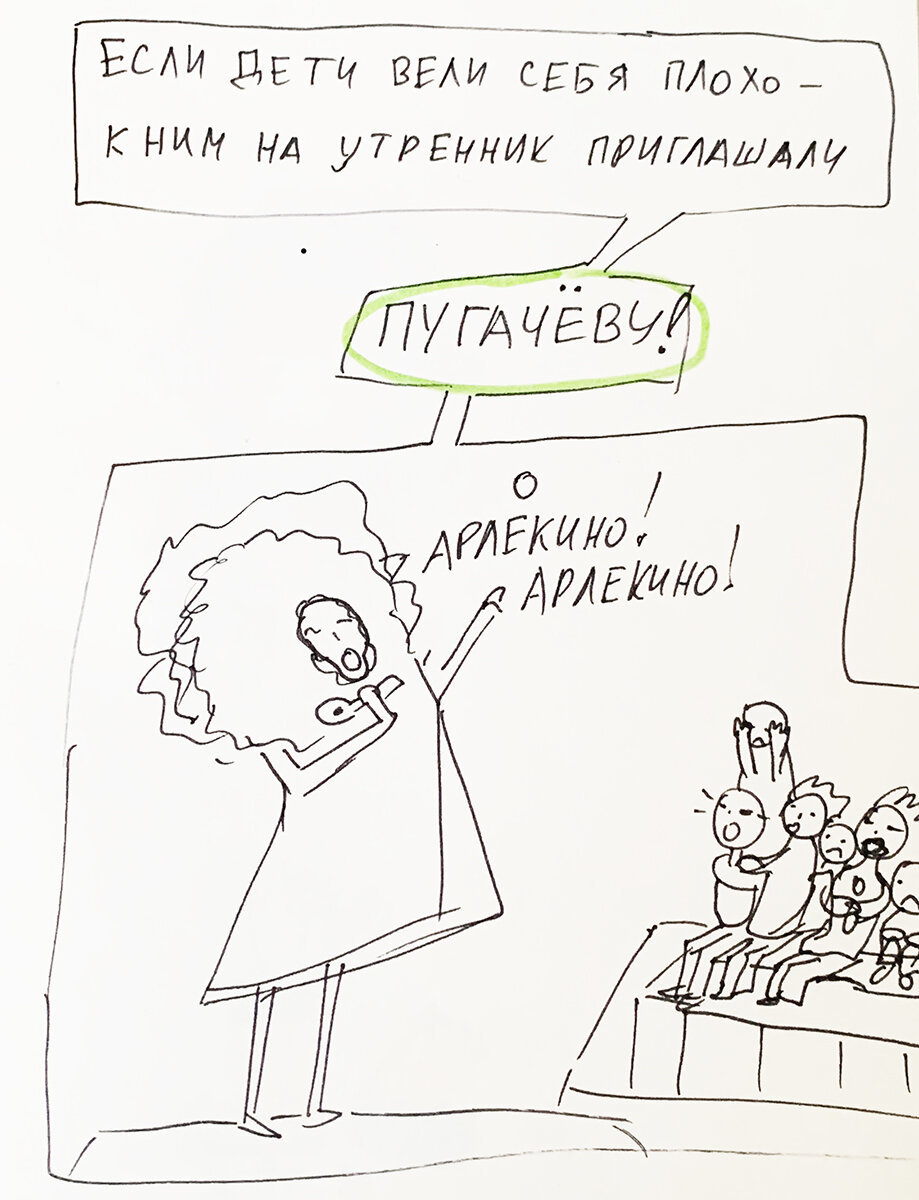 ЕСЛИ ДЕТИ ВЕЛИ СЕБЯ ПЛОХО –
К НИМ НА УТРЕННИК ПРИГЛАШАЛИ
ПУГАЧЁВУ!
О
АРЛЕКИНО!
АРЛЕКИНО!